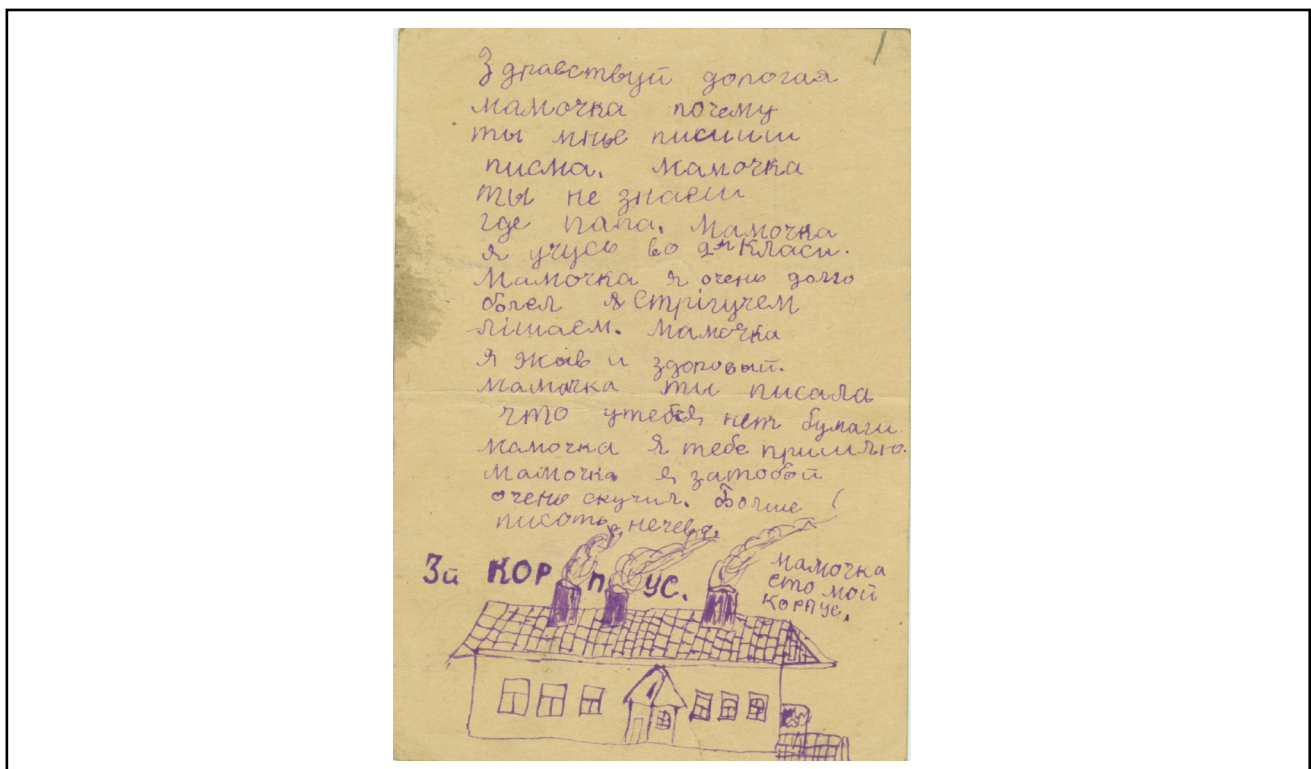 1
Здравствуй дорогая
мамочка почему
ты мнье писиш
писма. Мамочка
ты не знаеш
где папа. Мамочка
я учусь во 2м Класи.
Мамочка я очень долго
болел я Стрігучем
лішаем. Мамочка
я жыв и здоровый.
мамочка ты писала
что утебя нет бумаги
мамочка я тебе пришлю.
мамочка я затобой
очень скучил. Болше
писать нечево.
3й КОРПУС.
мамочка
ето мой
корпус.